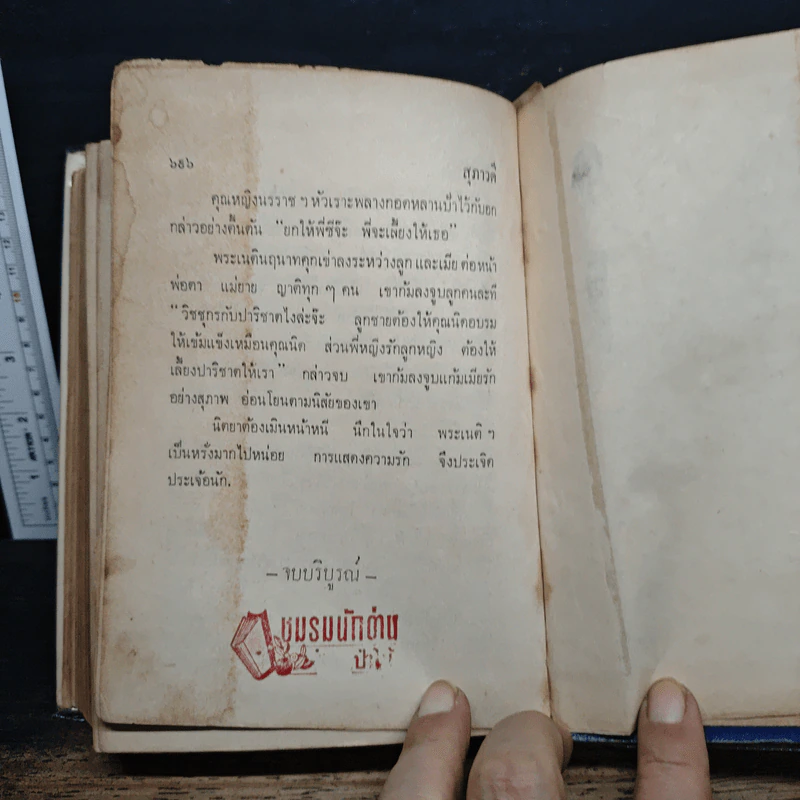 ๖๕๖ สุภาวดี
คุณหญิงนรราช ฯ หัวเราะพลางกอดหลานป้าไว้กับอก
กล่าวอย่างตื้นตัน "ยกให้พี่ซีจ๊ะ พี่จะเลี้ยงให้เธอ"
พระเนตินฤนาทคุกเข่าลงระหว่างลูก และเมีย ต่อหน้า
พ่อตา แม่ยาย ญาติทุก ๆ คน เขาก้มลงจูบลูกคนละที
"วิชชุกรกับปาริชาตไงล่ะจ๊ะ ลูกชายต้องให้คุณนิตอบรม
ให้เข้มแข็งเหมือนคุณนิต ส่วนพี่หญิงรักลูกหญิง ต้องให้
เลี้ยงปาริชาตให้เรา" กล่าวจบ เขาก้มลงจูบแก้มเมียรัก
อย่างสุภาพ อ่อนโยนตามนิสัยของเขา
นิตยาต้องเมินหน้าหนี นึกในใจว่า พระเนติ ฯ
เป็นหรั่งมากไปหน่อย การแสดงความรัก จึงประเจิด
ประเจ้อนัก.
– จบบริบูรณ์ –
ชมรมนักอ่าน